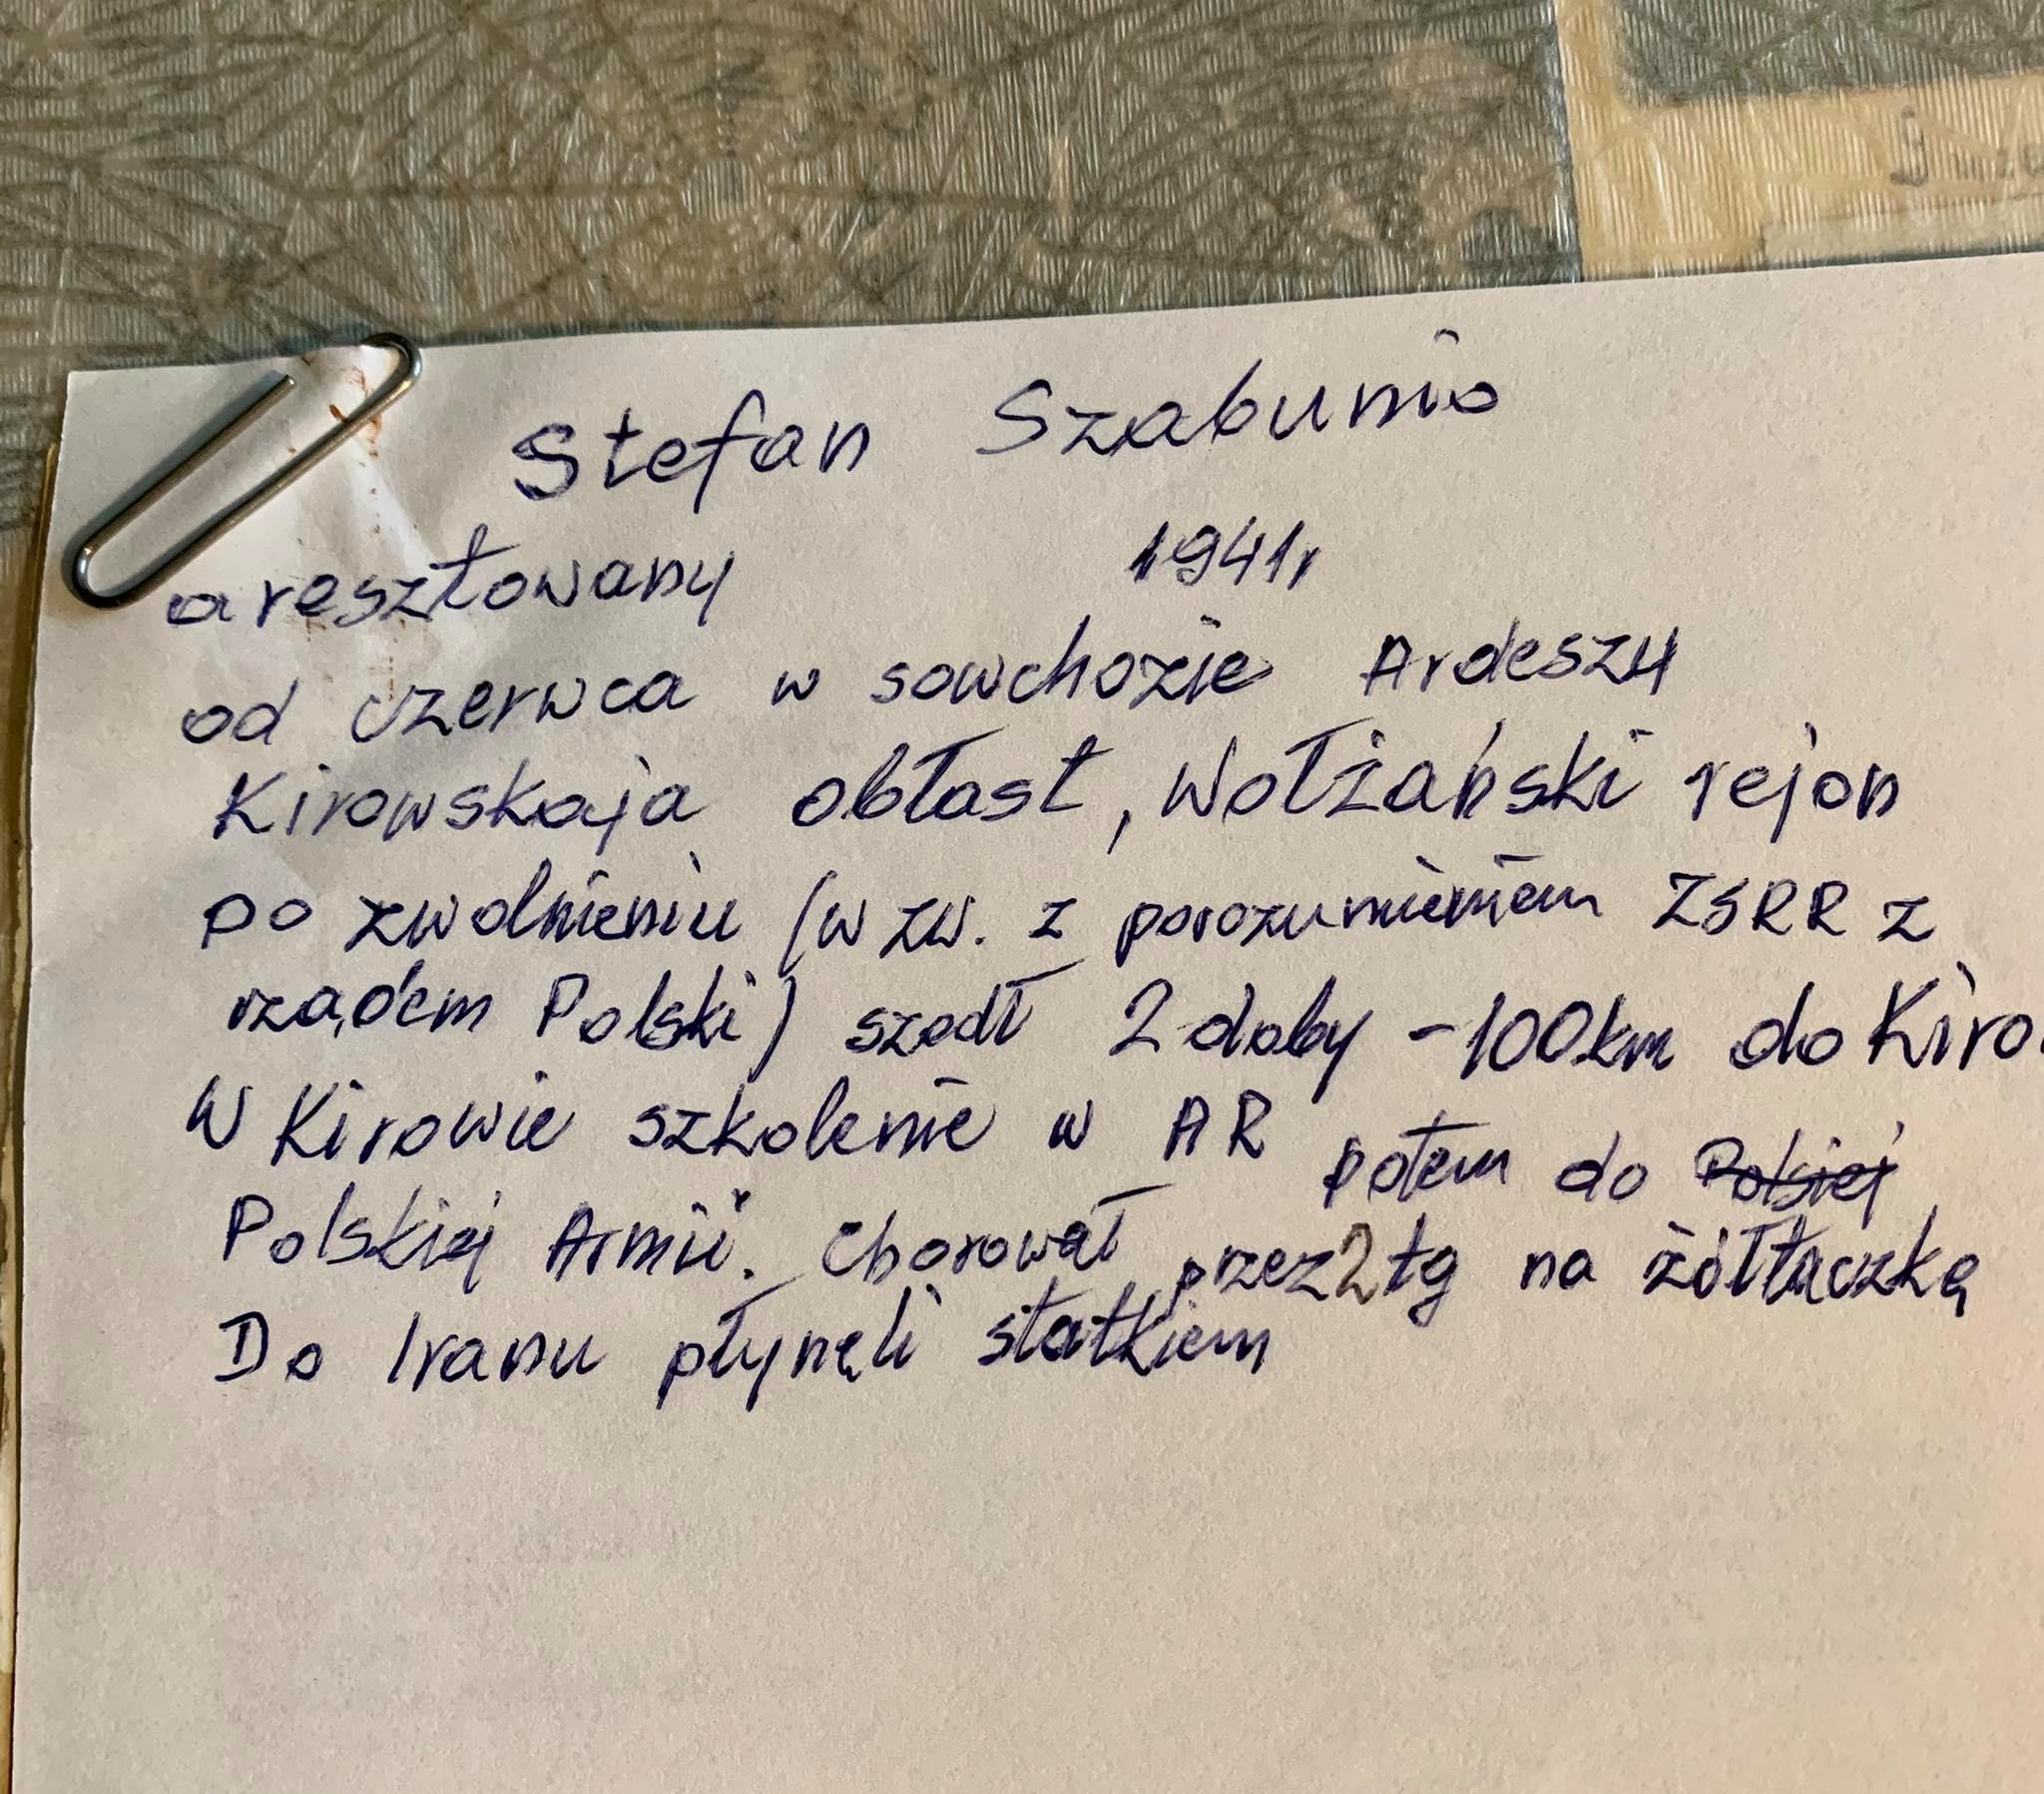 Stefan Szabunio
aresztowany 1941r
od czerwca w sowchozie Ardeszy
Kirowskaja obłast, Wołżański rejon
po zwolnieniu (w zw. z porozumieniem ZSRR z
rządem Polski) szedł 2 doby - 100km do Kiro
W Kirowie szkolenie w AR potem do Polsiej
Polskiej Armii. Chorował przez 2 tg na żółtaczką
Do Iranu płynęli statkiem